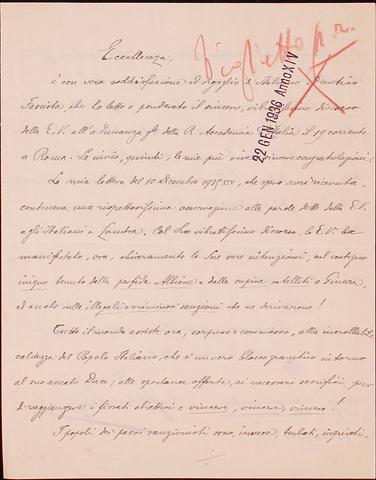 Biglietto p. r.
22 GEN 1936 Anno XIV
Eccellenza,
è con vera soddisfazione ed orgoglio d'Italiano, d'antico
Fascista, che ho letto e ponderato il sincero, vibratissimo discorso
della E.V. all'adunanza della R. Accademia d'Italia il 19 corrente
a Roma. Le invio, quindi, le mie più vive e sincere congratulazioni.
La mia lettera del 10 dicembre 1935 XIV, che spero avrà ricevuta,
conteneva una rispettosissima osservazione alle parole dette dalla E.V.
agli Italiani a Londra. Col Suo vibratissimo discorso, la E.V. ha
manifestato, ora, chiaramente le Sue vere intenzioni, sul contegno
iniquo tenuto dalla perfida Albione e dalle supine satelliti a Ginevra,
ed anche sulle illegali e criminose sanzioni che ne derivarono!
Tutto il mondo assiste ora, sorpreso e commosso, alla incrollabile
saldezza del Popolo Italiano, che è un vero blocco granitico intorno
al suo amato Duce; alle spontanee offerte, ai necessari sacrifici, per
raggiungere i fissati obiettivi e vincere, vincere, vincere!
I popoli dei paesi sanzionisti sono, invece, turbati, inquieti,